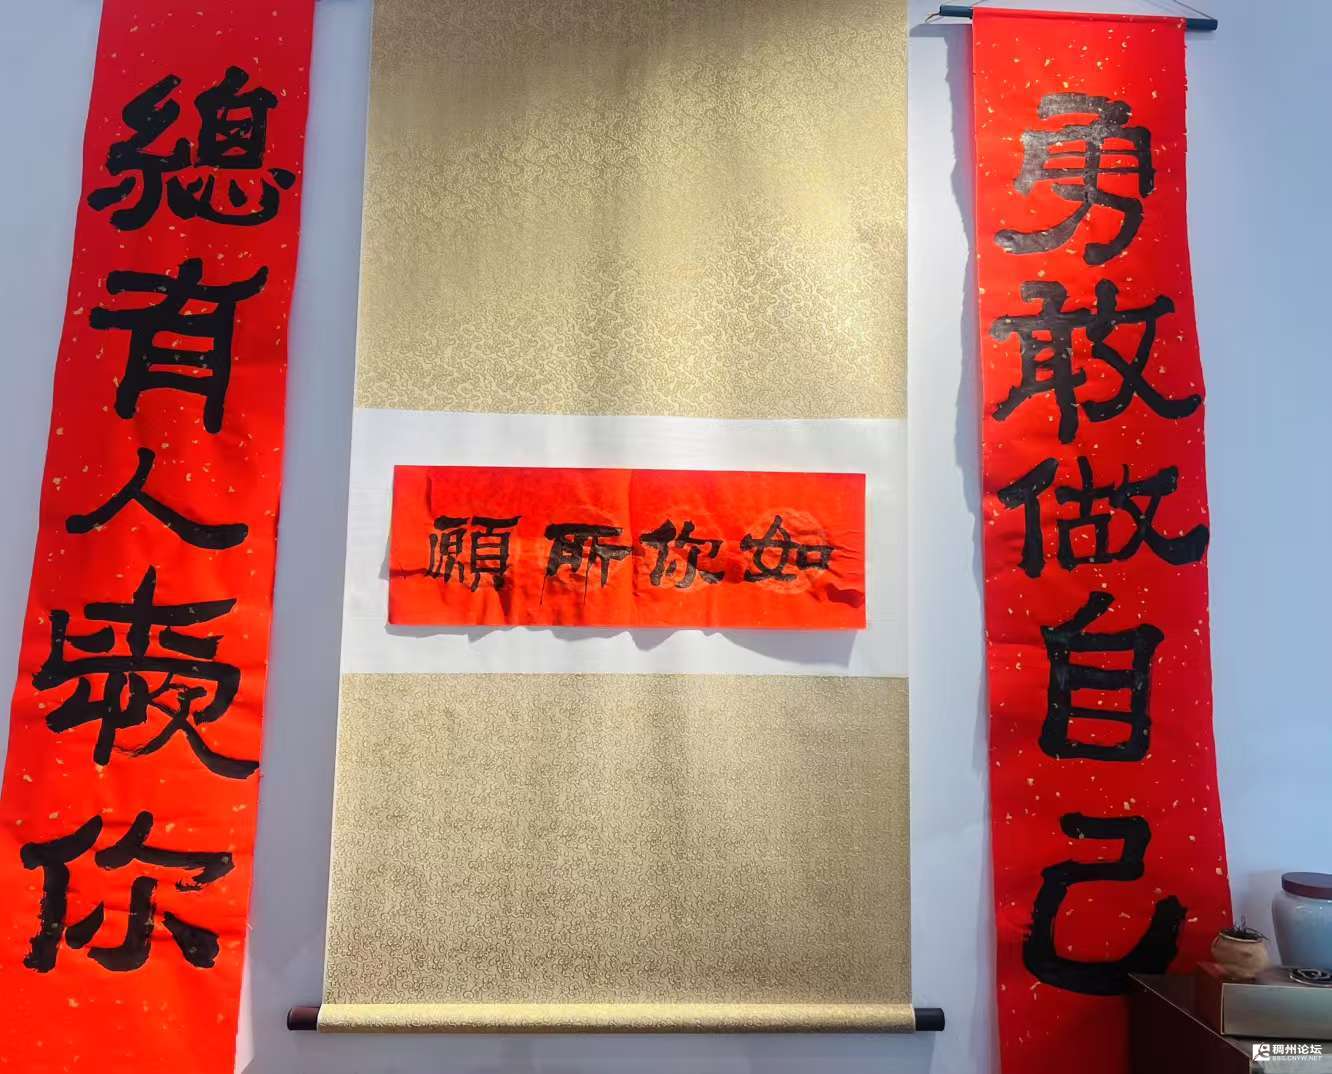 勇敢做自己
如你所願
總有人你
稠州论坛
BBS.CNYW.NET